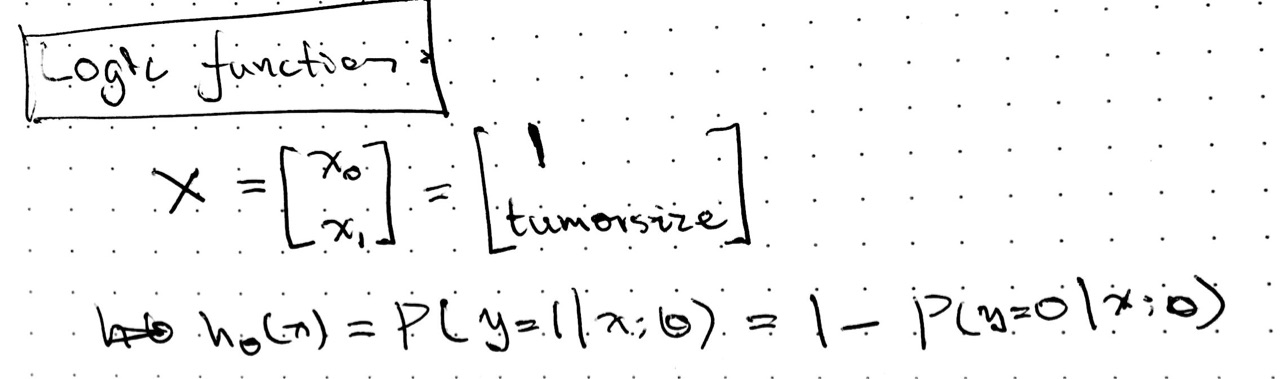 Logic function
X = [x₀ x₁] = [1 tumorsize]
h_θ(x) = P(y=1|x;θ) = 1 - P(y=0|x;θ)